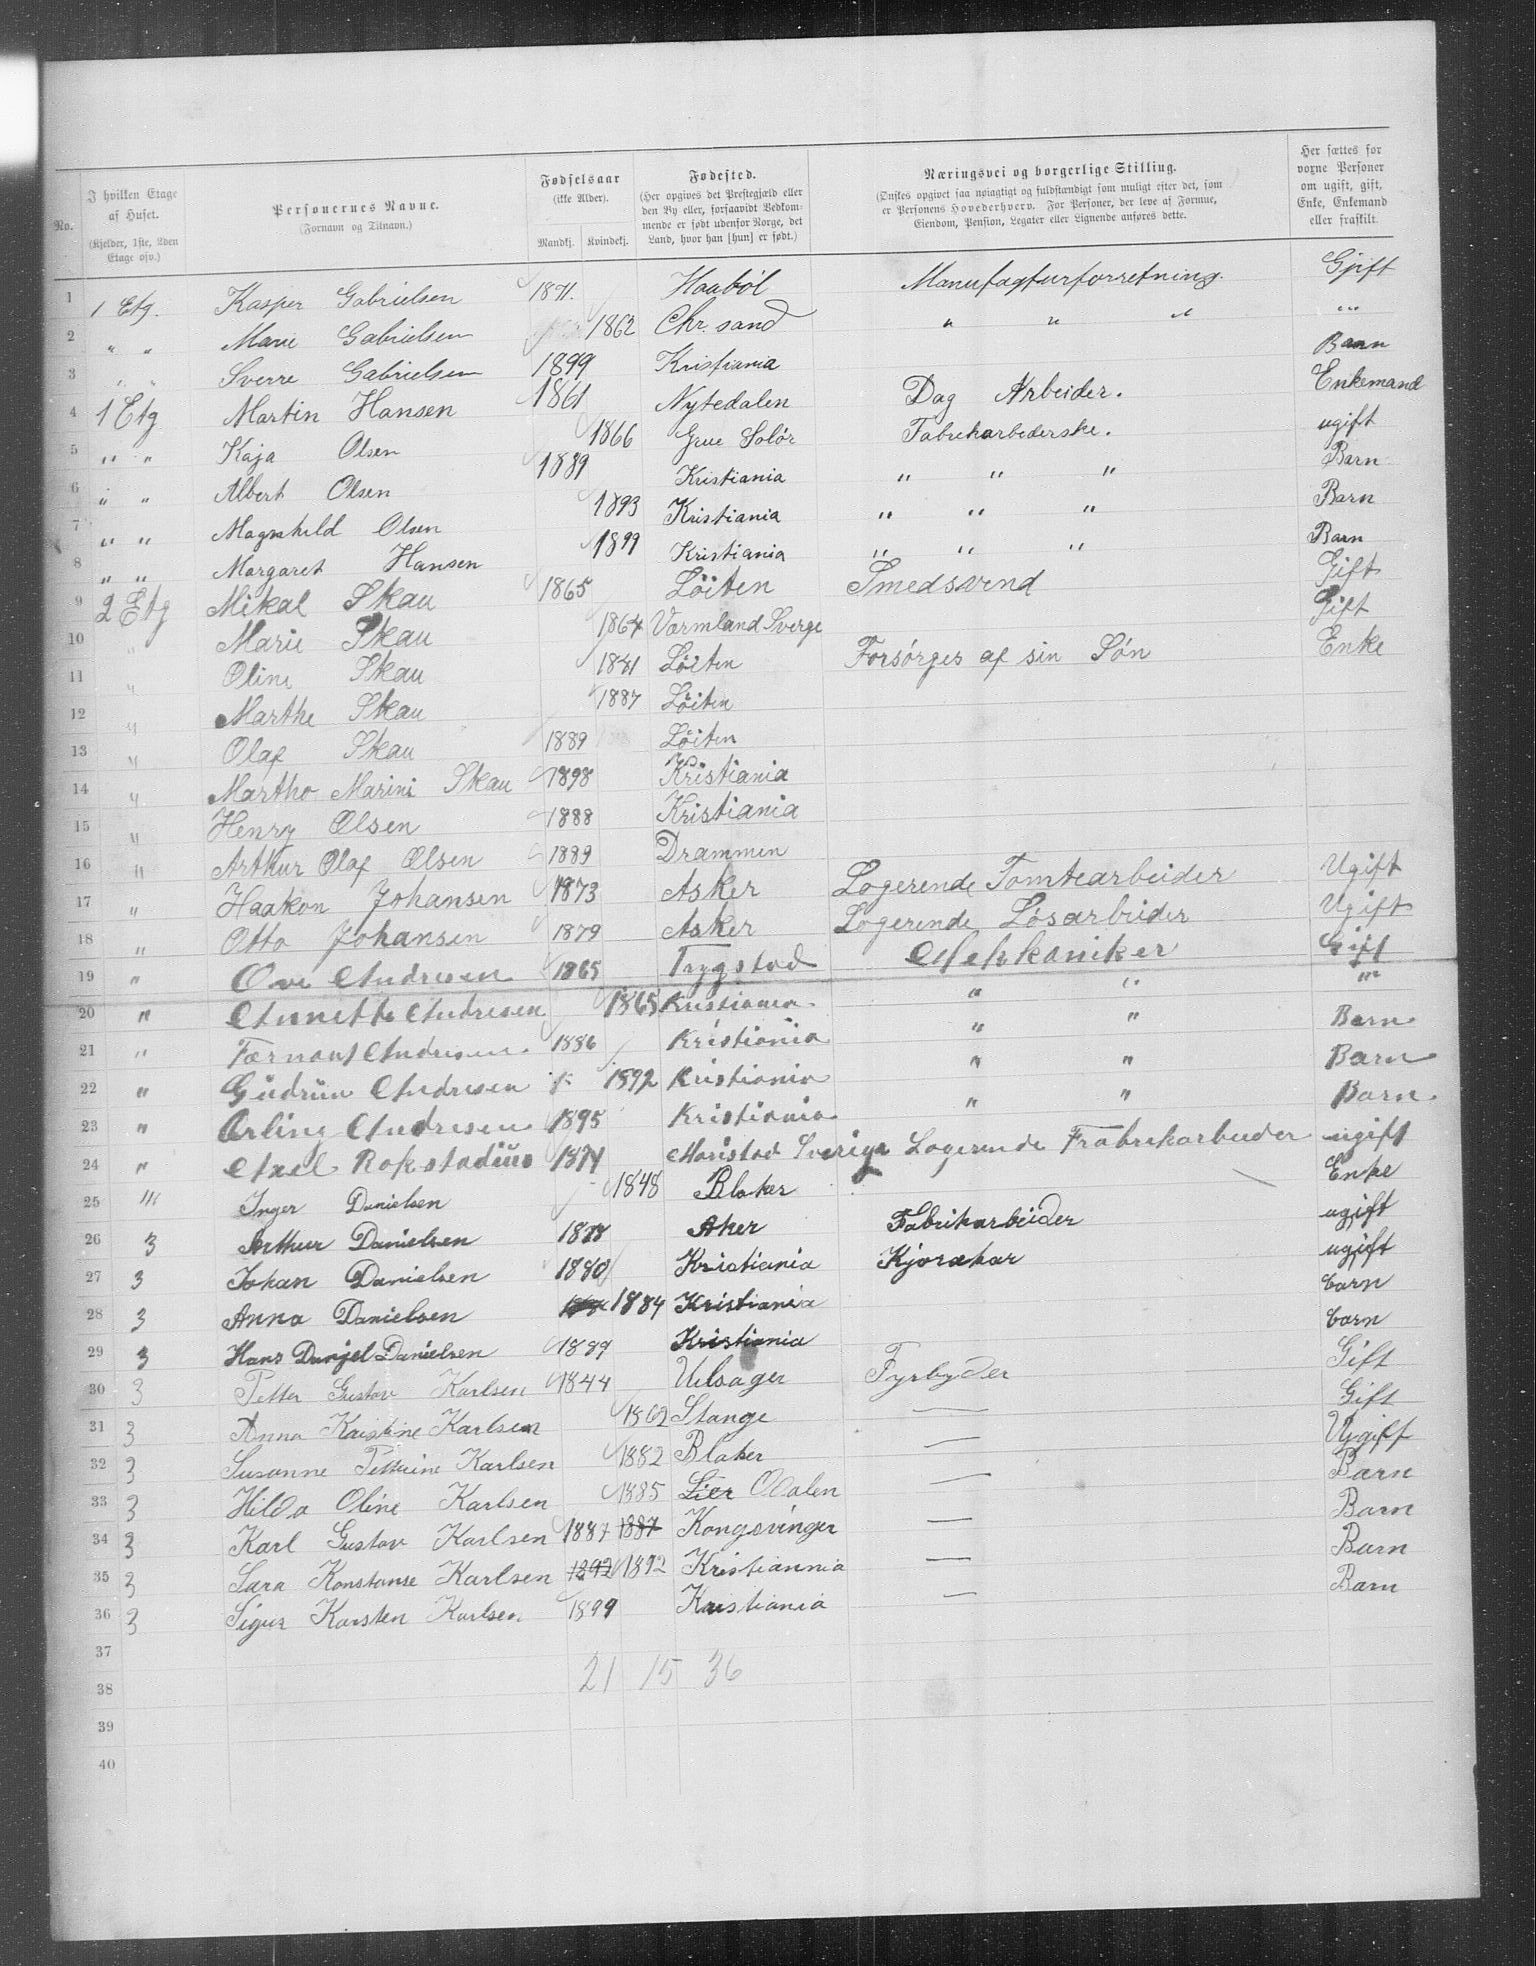 No. I hvilken Etage af Huset. (Kjelder, 1ste, 2den Etage osv.) Personernes Navne. (Fornavn og Tilnavn.) Fødselsaar (ikke Alder). Mandkj. Kvindekj. Fødested. (Her opgives det Prestegjæld eller den By eller, forsaavidt Vedkommende er født udenfor Norge, det Land, hvor han [hun] er født.) Næringsvei og borgerlige Stilling. (Ønskes opgivet saa nøiagtigt og fuldstændigt som muligt efter det, som er Personens Hovederhverv. For Personer, der leve af Formue, Eiendom, Pension, Legater eller Lignende anføres dette. Her sættes for voxne Personer om ugift, gift, Enke, Enkemand eller fraskilt.
1 1 Etg. Kasper Gabrielsen 1871. Haaböl Manufagturforretning. Gjift
2 " " Marie Gabrielsen 1862 Chr. sand " " " "
3 " " Sverre Gabrielsen 1899 Kristiania Barn
4 1 Etg Martin Hansen 1861 Nytedalen Dag Arbeider. Enkemand
5 " " Kaja Olsen 1866 Grue Solör Fabrekarbederske. ugift
6 " " Albert Olsen 1889 Kristiania " " " Barn
7 " " Magnhild Olsen 1893 Kristiania " " " Barn
8 " " Margaret Hansen 1899 Kristiania " " " Barn
9 2 Etg Mikal Skau 1865 Löiten Smedsvend Gift
10 " Marie Skau 1864 Varmland Sverge Gift
11 " Oline Skau Löiten Forsørges af sin Søn Enke
12 " Marthe Skau 1887 Löiten
13 " Olaf Skau 1889 Löiten
14 " Martho Marini Skau 1898 Kristiania
15 " Henry Olsen 1888 Kristiania
16 " Arthur Olaf Olsen 1889 Drammen
17 " Haakon Johansen 1873 Asker Logerende Tomtearbeider Ugift
18 " Otto Johansen 1879 Asker Logerende Løsarbeider Ugift
19 " Ove Andresen 1865 Trygstad Mekkaniker Gift
20 " Annette Andresen 1865 Kristiania " " "
21 " Andresen 1886 Kristiania " " Barn
22 " Gudrün Andresen 1892 Kristiania " " Barn
23 " Erling Andresen 1895 Kristiania " " Barn.
24 " Axel Rokstadius 1871 Maristad Sverige Logerende Frabrekarbeider ugift
25 " Inger Danielsen 1848 Blaker Enke
26 3 Arthur Danielsen 1878 Aker Fabrikarbeider ugift
27 3 Johan Danielsen 1880 Kristiania Kjørakar ugift
28 3 Anna Danielsen 1884 Kristiania barn
29 3 Hans Danjel Danielsen 1889 Kristiania barn
30 3 Petter Gustav Karlsen 1844 Ulsager Fyrbyder Gift
31 3 Anna Kristine Karlsen 1862 Stange — Gift
32 3 Susanne Petterine Karlsen 1882 Blaker — Ugift
33 3 Hilda Oline Karlsen 1885 Lier Odalen — Barn
34 3 Karl Gustav Karlsen 1887 1887 Kongsvinger — Barn
35 3 Sara Konstanse Karlsen 1892 1892 Kristiannia — Barn
36 3 Sigur Karsten Karlsen 1899 Kristiania — Barn
37
38 21 15 36
39
40